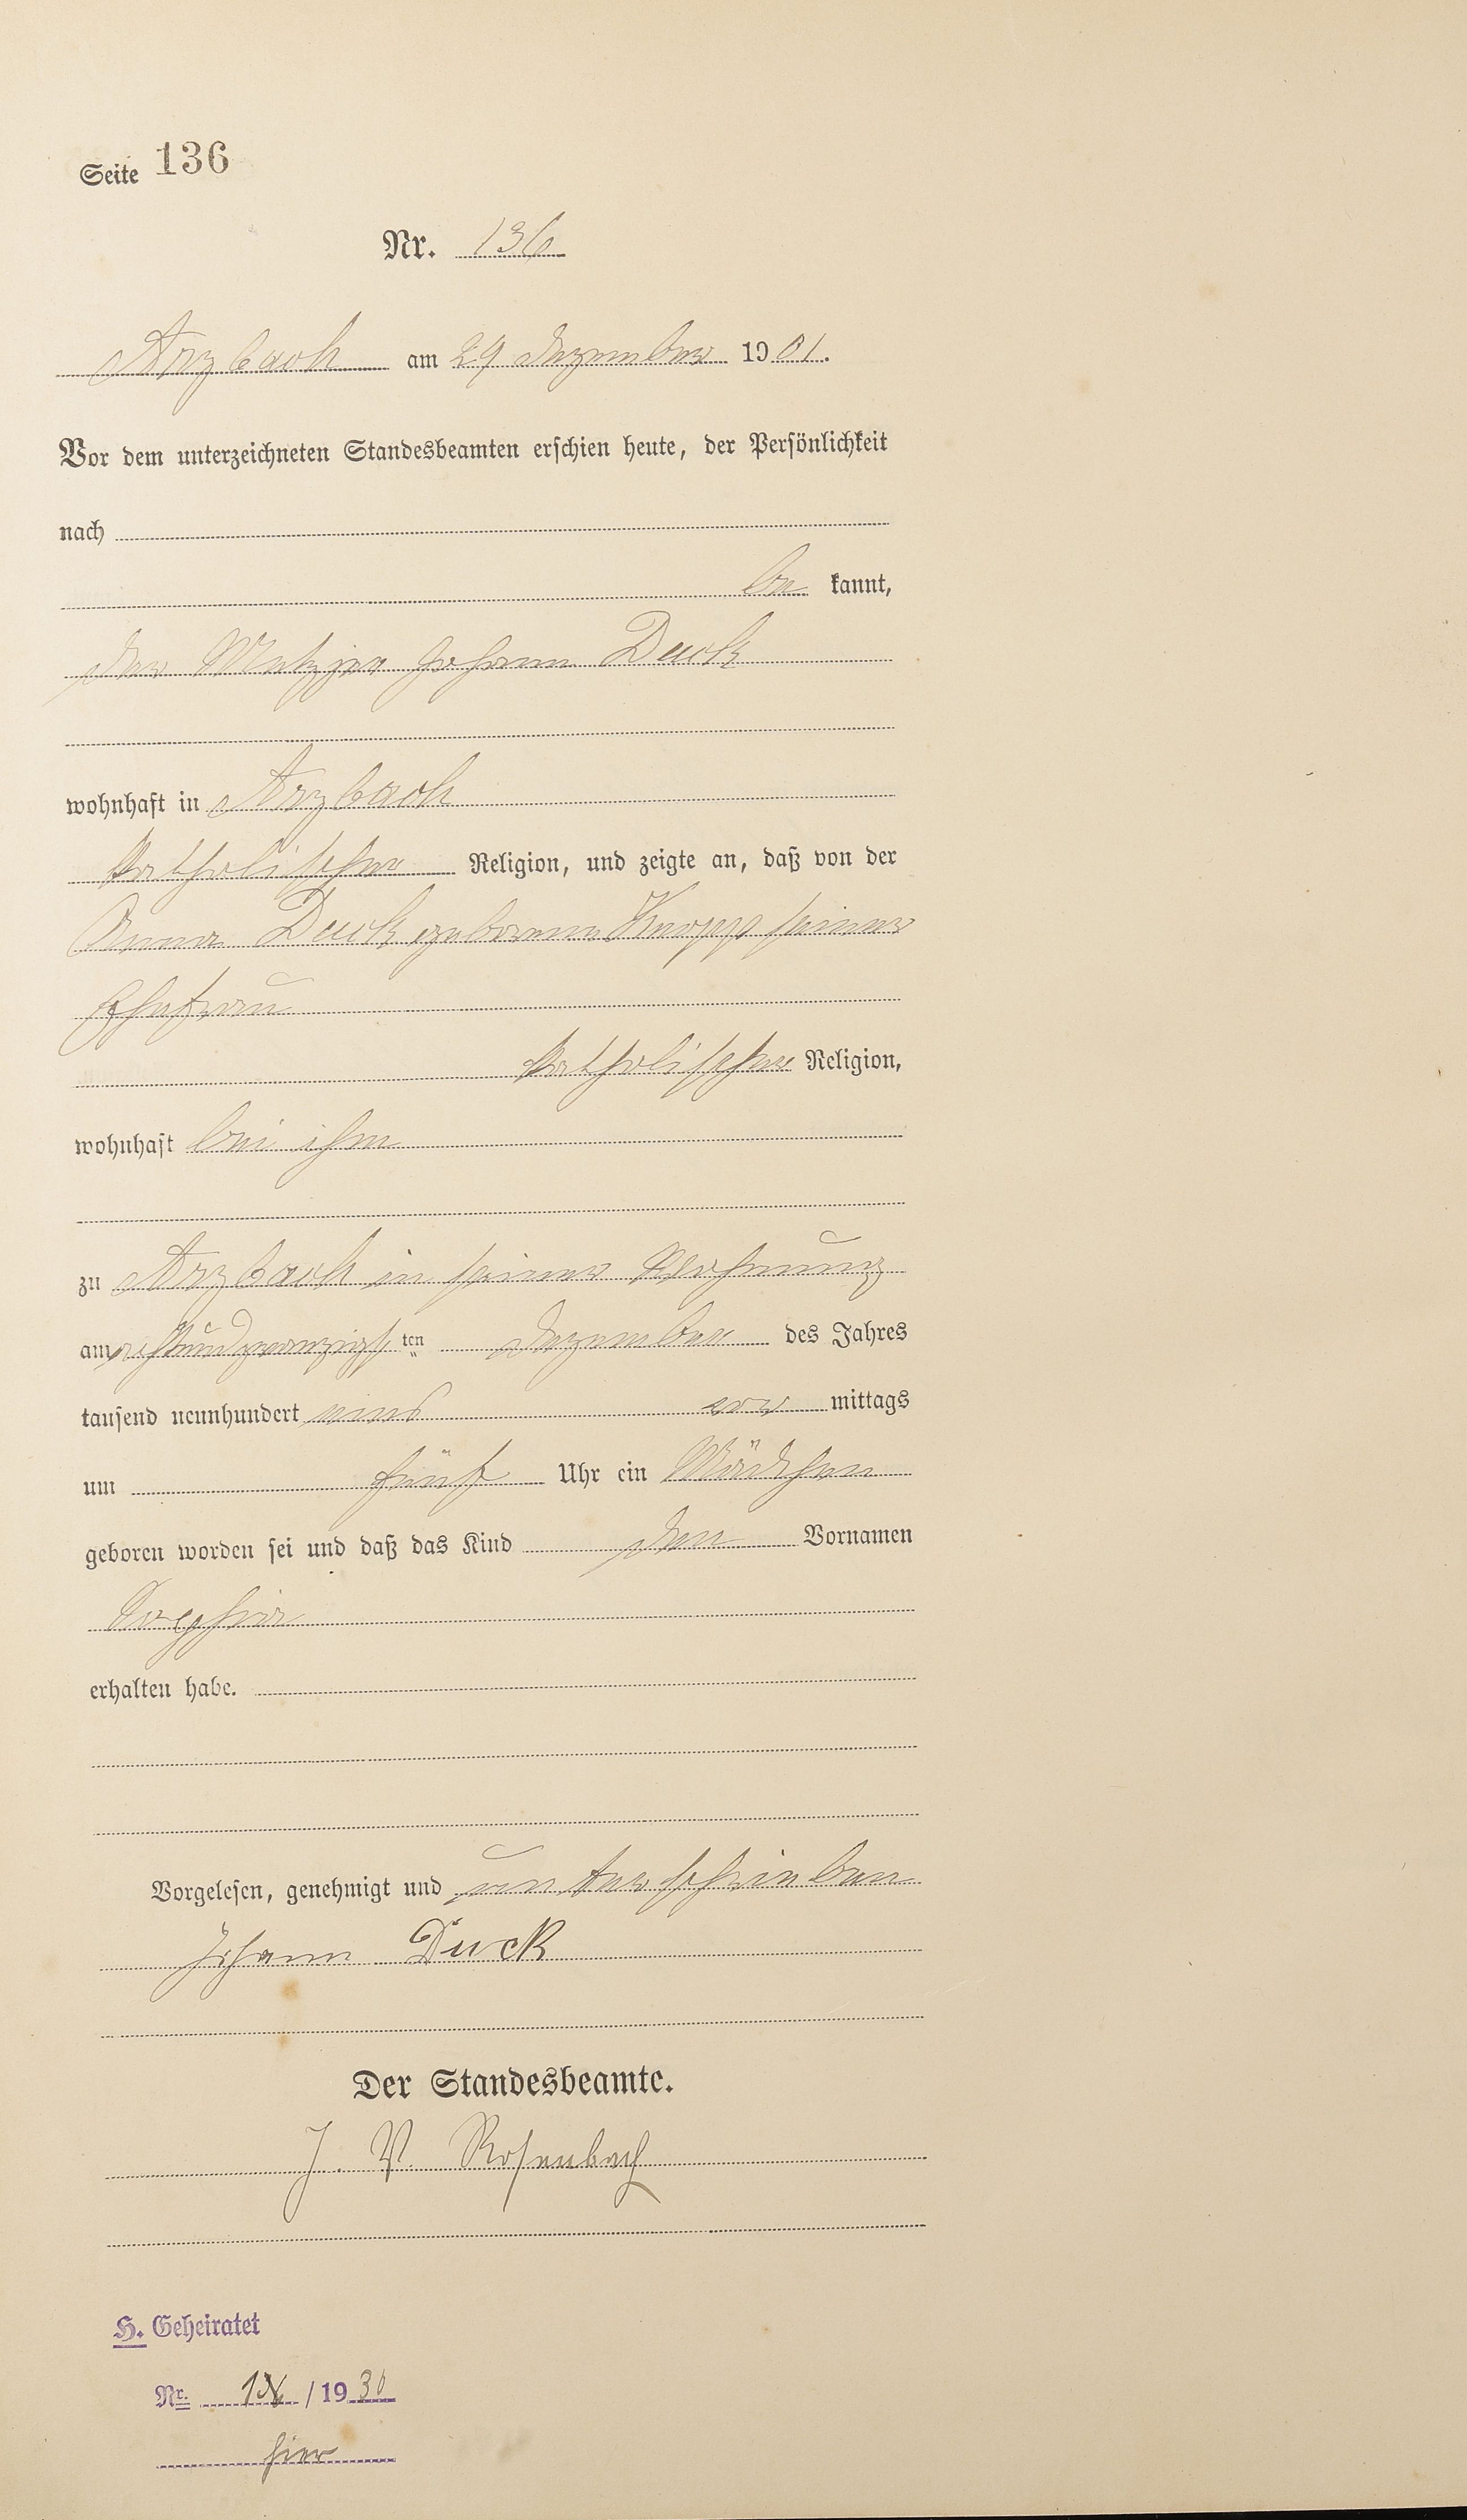 Seite 136
Nr. 136
Arzbach am 29 Dezember 1901.
Vor dem unterzeichneten Standesbeamten erschien heute, der Persönlichkeit
nach
be kannt,
der Metzger Johann Duck
wohnhaft in Arzbach
katholischer Religion, und zeigte an, daß von der
Anna Duck geborene Knopp seiner
Ehefrau
katholischer Religion,
wohnhaft bei ihm
zu Arzbach in seiner Wohnung
am achtundzwanzigsten Dezember des Jahres
tausend neunhundert eins vor mittags
um fünf Uhr ein Mädchen
geboren worden sei und daß das Kind den Vornamen
Sophia
erhalten habe.
Vorgelesen, genehmigt und unterschrieben
Johann Duck
Der Standesbeamte.
J. V. Rosenbach
H. Geheiratet
Nr. /1930
hier